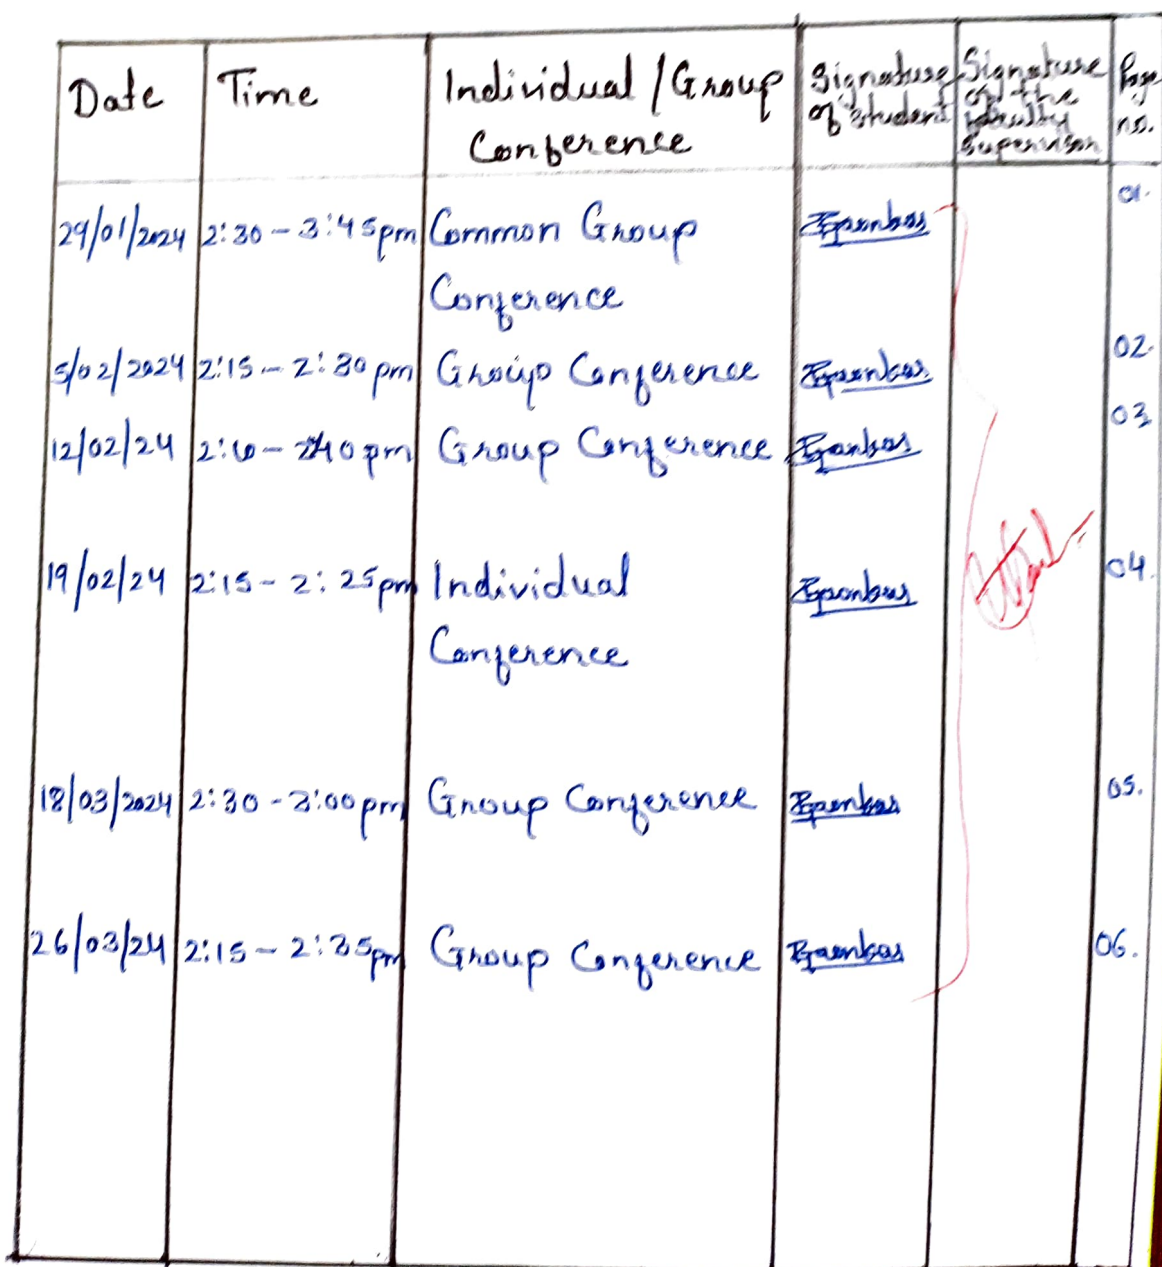 Date Time Individual / Group Conference Signature of Student Signature of the faculty Supervisor Page no.
29/01/2024 2:30 - 3:45pm Common Group Conference 01.
5/02/2024 2:15 - 2:30 pm Group Conference 02.
12/02/24 2:10 - 2:40 pm Group Conference 03
19/02/24 2:15 - 2:25pm Individual Conference 04.
18/03/2024 2:30 - 3:00pm Group Conference 05.
26/03/24 2:15 - 2:35pm Group Conference 06.